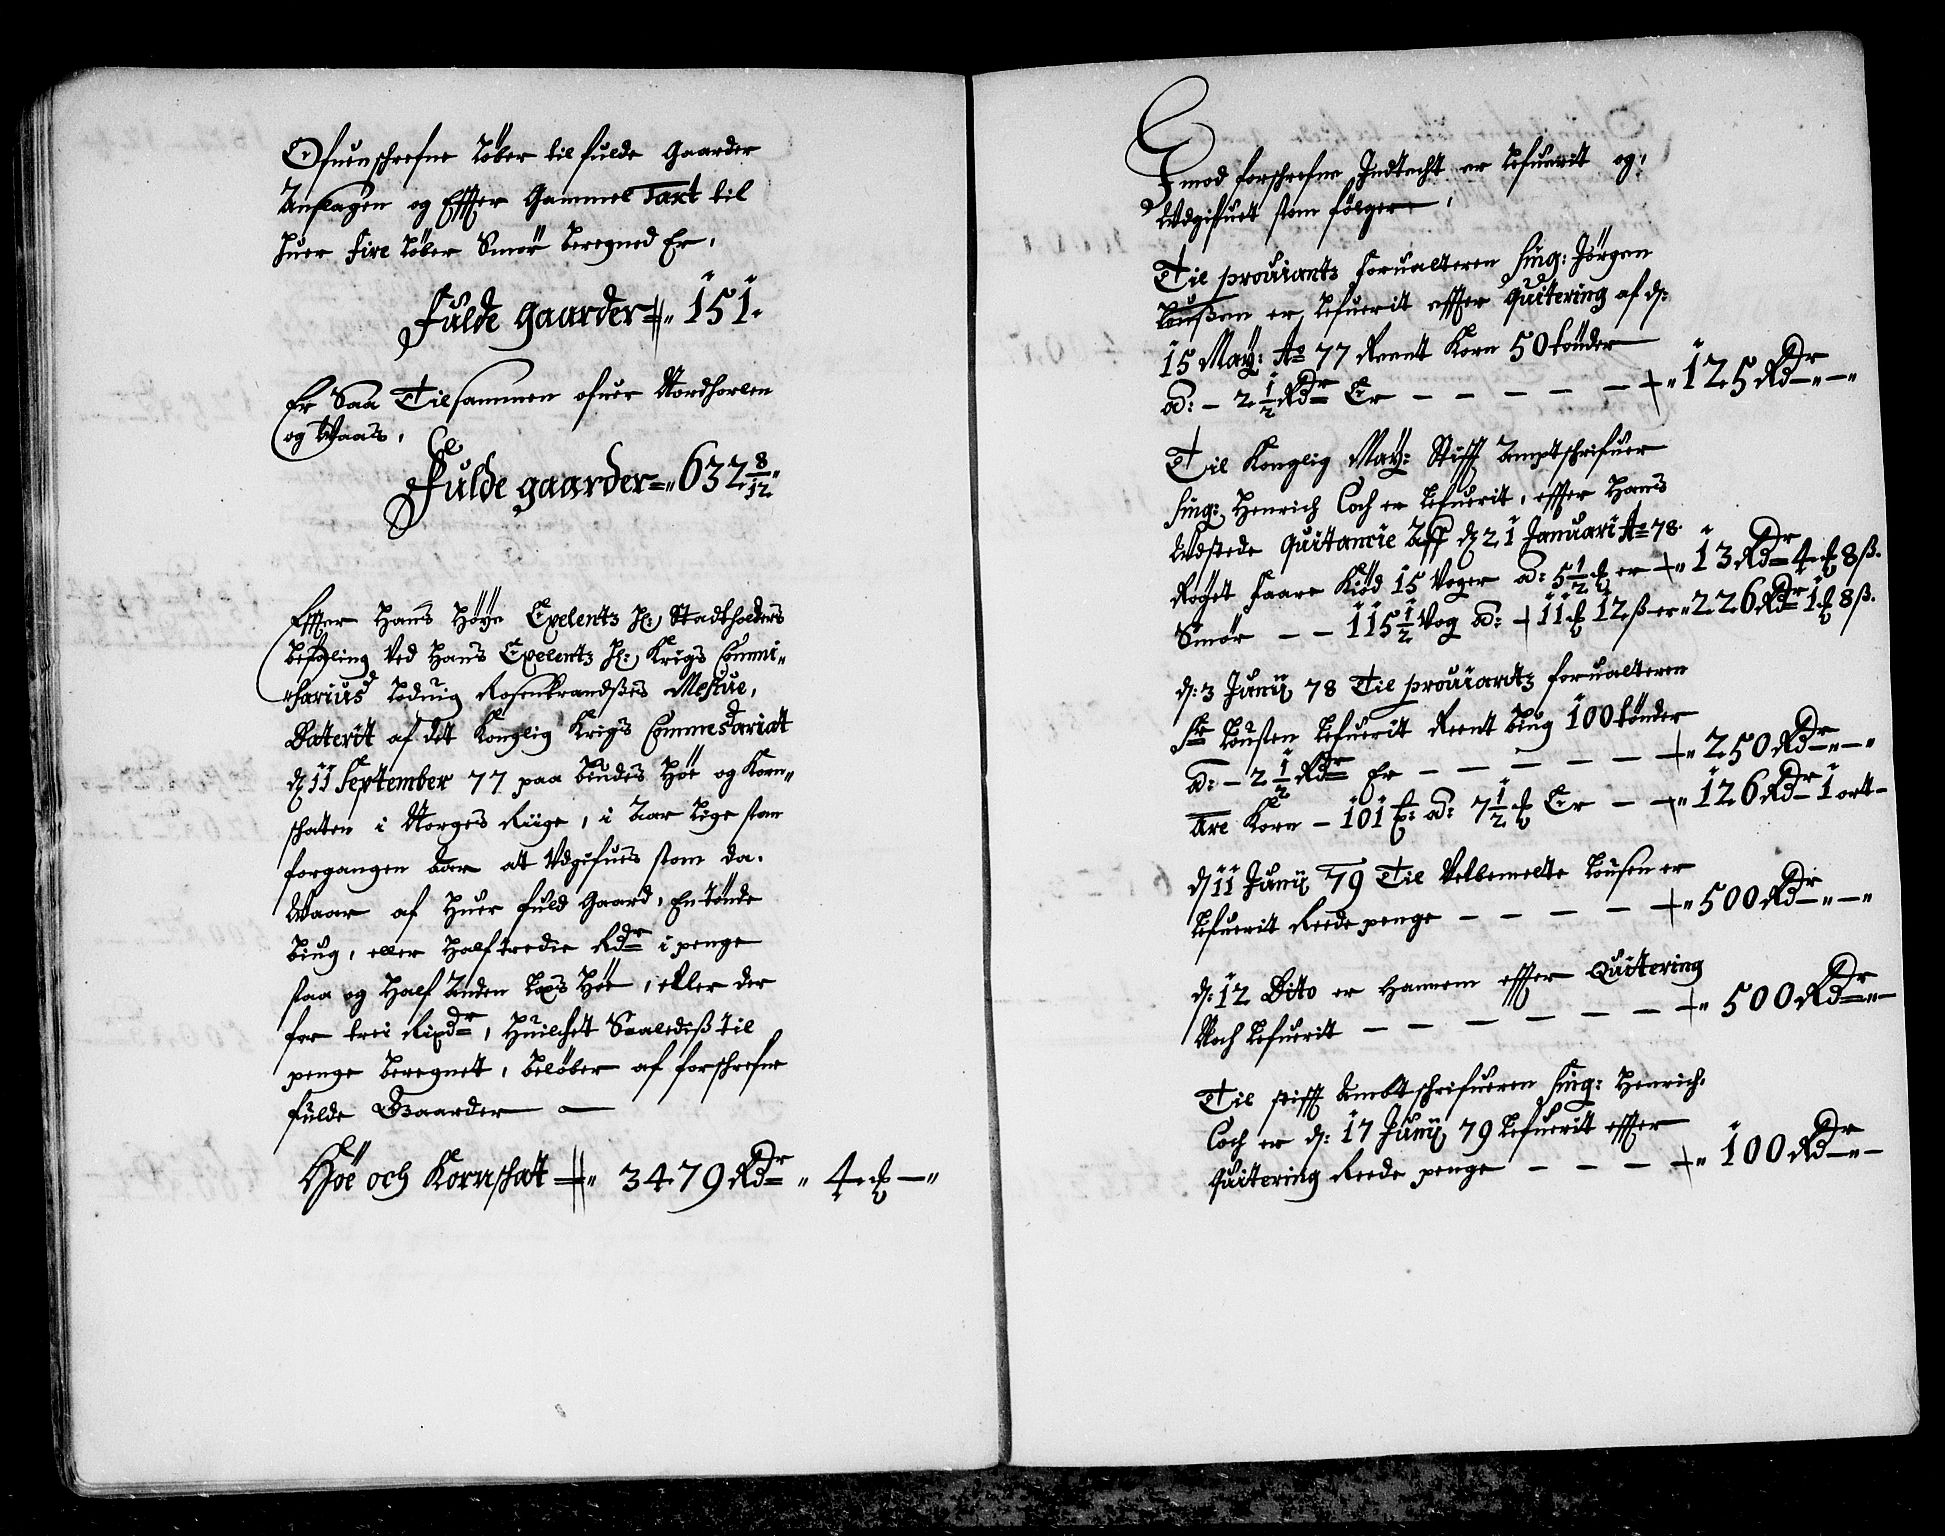 Ofuenschrefne Löber til fulde Gaarder
Anslagen og Effter Gammel Taxt til
huer fire Löber Smør beregned Er,
Fulde gaarder 151.
Er Saa Tilsammen ofuer Nordhorlen
og Waas,
Fulde gaarder 632 8/12
Effter Hans Höye Exelentz H: Stadtholders
befaling Ved Hans Exelentz H: Krigs Commi-
sarius Loduig Rosenkrandses
Daterit af det Konglig Krigs Commesariat
d 11 September 77 paa bemdes Höe og Korn-
schaten i Norges Riige, i Aar Lige som
forgangen Aar at Udgifues som da.
Waar af huer fuld Gaard, En tønde
biug, eller halftredie Rdr i penge
saa og Half Anden Læs Höe, eller der
for trei Rixdr, huilchet Saaledis til
penge beregnet, beløber af forschrefne
fulde Gaarder
Höe och Kornschat 3479 Rdr 4
Imod forschrefne Indtecht er Lefuerit og,
Udgifuet som følger,
Til prouiantz forualteren Sing: Jörgen
Lousen er Lefuerit effter Quitering af d:
15 May: Ao 77 Reent Korn 50 tönder
ad: - 2 1/2 Rdr Er 125 Rdr
Til Konglig May: Stifft Amptschrifuer
Sing: Henrich Coch er Lefuerit, effter Hans
Udstede Quitancie Aff d 21 Januari Ao 78.
Röget faare Kiöd 15 Voger ad: 5 1/2 er 13 Rdr 4 8 ß.
Smör 115 1/2 Vog ad: 11 12 ß er 226 Rdr 1 8 ß.
d: 3 Junij 78 Til prouiantz forualteren
Sr Lousen Lefuerit Reent biug 100 tönder
ad: - 2 1/2 Rdr Er 250 Rdr
Korn 101 ad: 7 1/2 Er 126 Rdr 1 ort
d 11 Junij 79 Til Velbemelte Lousen er
Lefuerit Reede penge 500 Rdr
d: 12 Dito er Hannem effter Quitering
Noch Lefuerit 500 Rdr
Til stifft Ambtschrifueren Sing: Henrich
Coch er d: 17 Junij 79 Lefuerit effter
Quitering Reede penge 100 Rdr